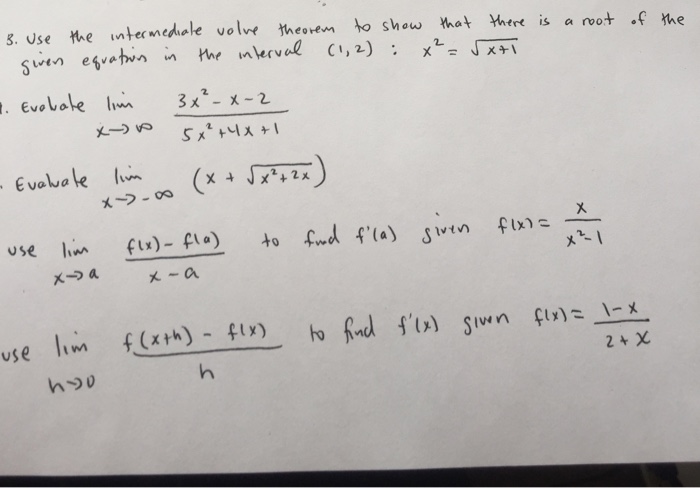 3. Use the intermediate volve theorem to show that there is a root of the
given equation in the interval (1,2) : x² = √x+1
1. Evaluate lim x→∞ 3x²-x-2 / 5x²+4x+1
. Evaluate lim x→-∞ (x + √x²+2x)
use lim x→a f(x)-f(a) / x-a to find f'(a) given f(x) = x / x²-1
use lim h→0 f(x+h) - f(x) / h to find f'(x) given f(x) = 1-x / 2+x